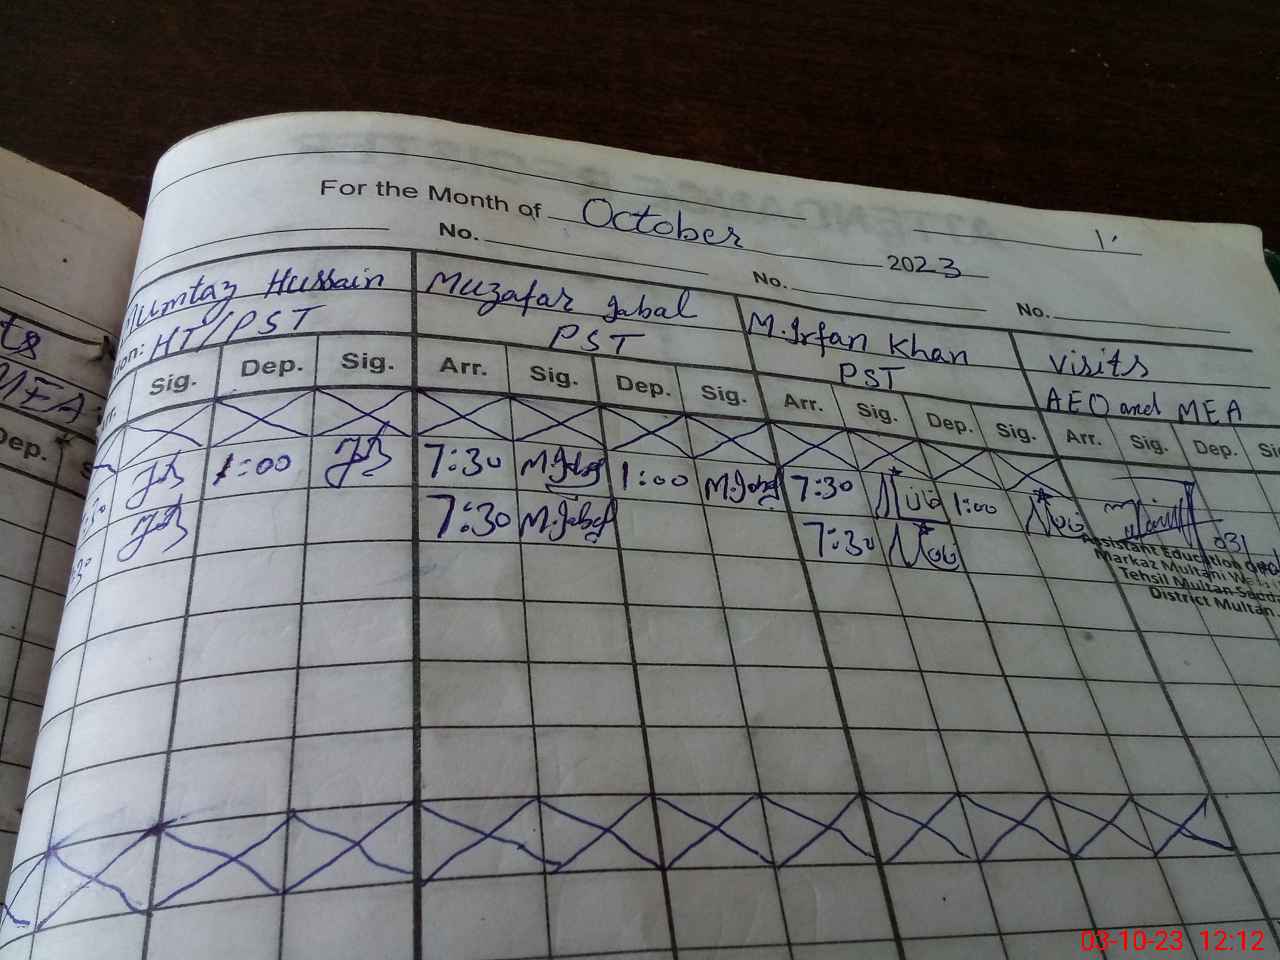 For the Month of October 2023
No. No. No.
Mumtaz Hussain Muzafar Iqbal M. Irfan Khan Visits
HT/PST PST PST AEO and MEA
Sig. Dep. Sig. Arr. Sig. Dep. Sig. Arr. Sig. Dep. Sig. Arr. Sig. Dep.
1:00 7:30 M.Iqbal 1:00 M.Iqbal 7:30 1:00
7:30 M.Iqbal 7:30
Assistant Education
Markaz Multani
Tehsil Multan Saddar
District Multan.
MEA
Dep.
03-10-23 12:12